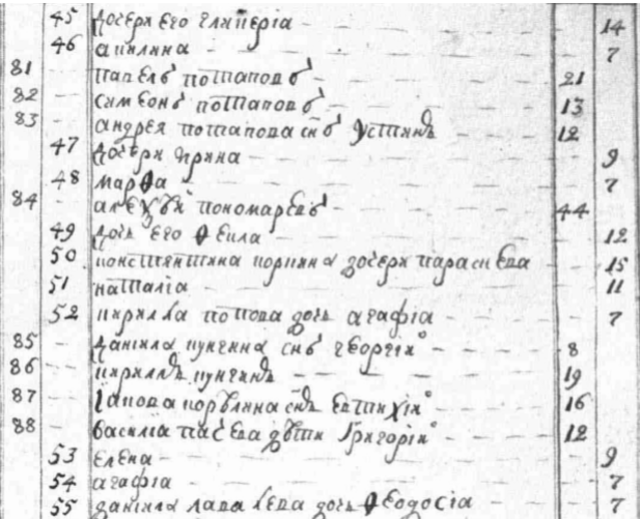 45 дочери его гликерiа 14
46 акилина 7
81 павелъ потаповъ 21
82 симеонъ потаповъ 13
83 андрея потапова снъ устинъ 12
47 дочери ирина 9
48 марѳа 7
84 алеѯѣй пономаревъ 44
49 дочь его ѳекла 12
50 констянтина дочери параскева 15
51 наталiа 11
52 кирилла попова дочь агафiа 7
85 данiила кунгина снъ георгiй 8
86 кириллъ кунгинъ 19
87 iакова снъ евтихiй 16
88 василiа дѣти григорiй 12
53 елена 9
54 агафiа 7
55 данiила дочь ѳеодосiа 7